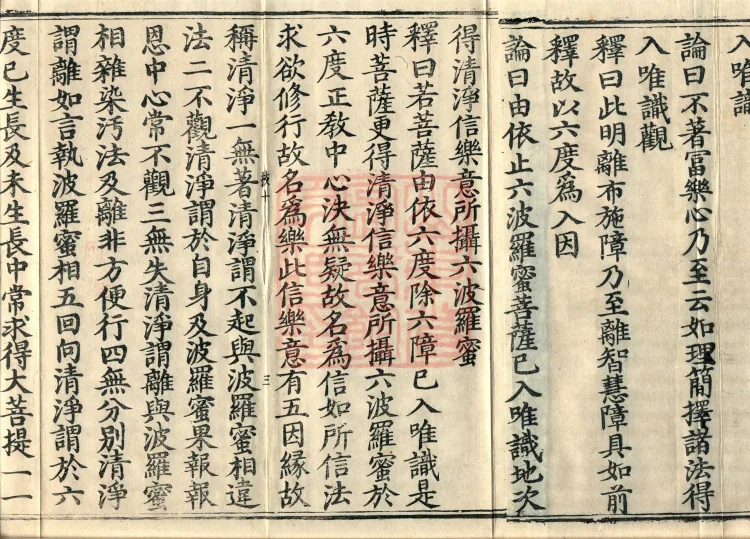 入唯識
論曰不著富樂心乃至云如理簡擇諸法得
入唯識觀
釋曰此明離布施障乃至離智慧障具如前
釋故以六度爲入因
論曰由依止六波羅蜜菩薩已入唯識地次
得清淨信樂意所攝六波羅蜜
釋曰若菩薩由依六度除六障已入唯識是
時菩薩更得清淨信樂意所攝六波羅蜜於
六度正敎中心決無疑故名爲信如所信法
求欲修行故名爲樂此信樂意有五因緣故
十 三
稱清淨一無著清淨謂不起與波羅蜜相違
法二不觀清淨謂於自身及波羅蜜果報報
恩中心常不觀三無失清淨謂離與波羅蜜
相雜染污法及離非方便行四無分別清淨
謂離如言執波羅蜜相五回向清淨謂於六
度已生長及未生長中常求得大菩提一一